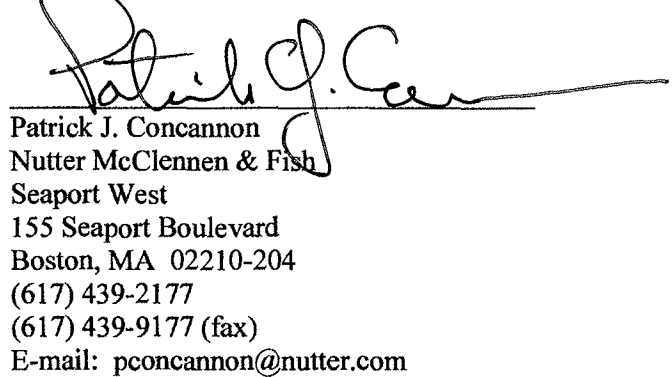 Patrick J. Concannon
Patrick J. Concannon
Nutter McClennen & Fish
Seaport West
155 Seaport Boulevard
Boston, MA 02210-204
(617) 439-2177
(617) 439-9177 (fax)
E-mail: pconcannon@nutter.com